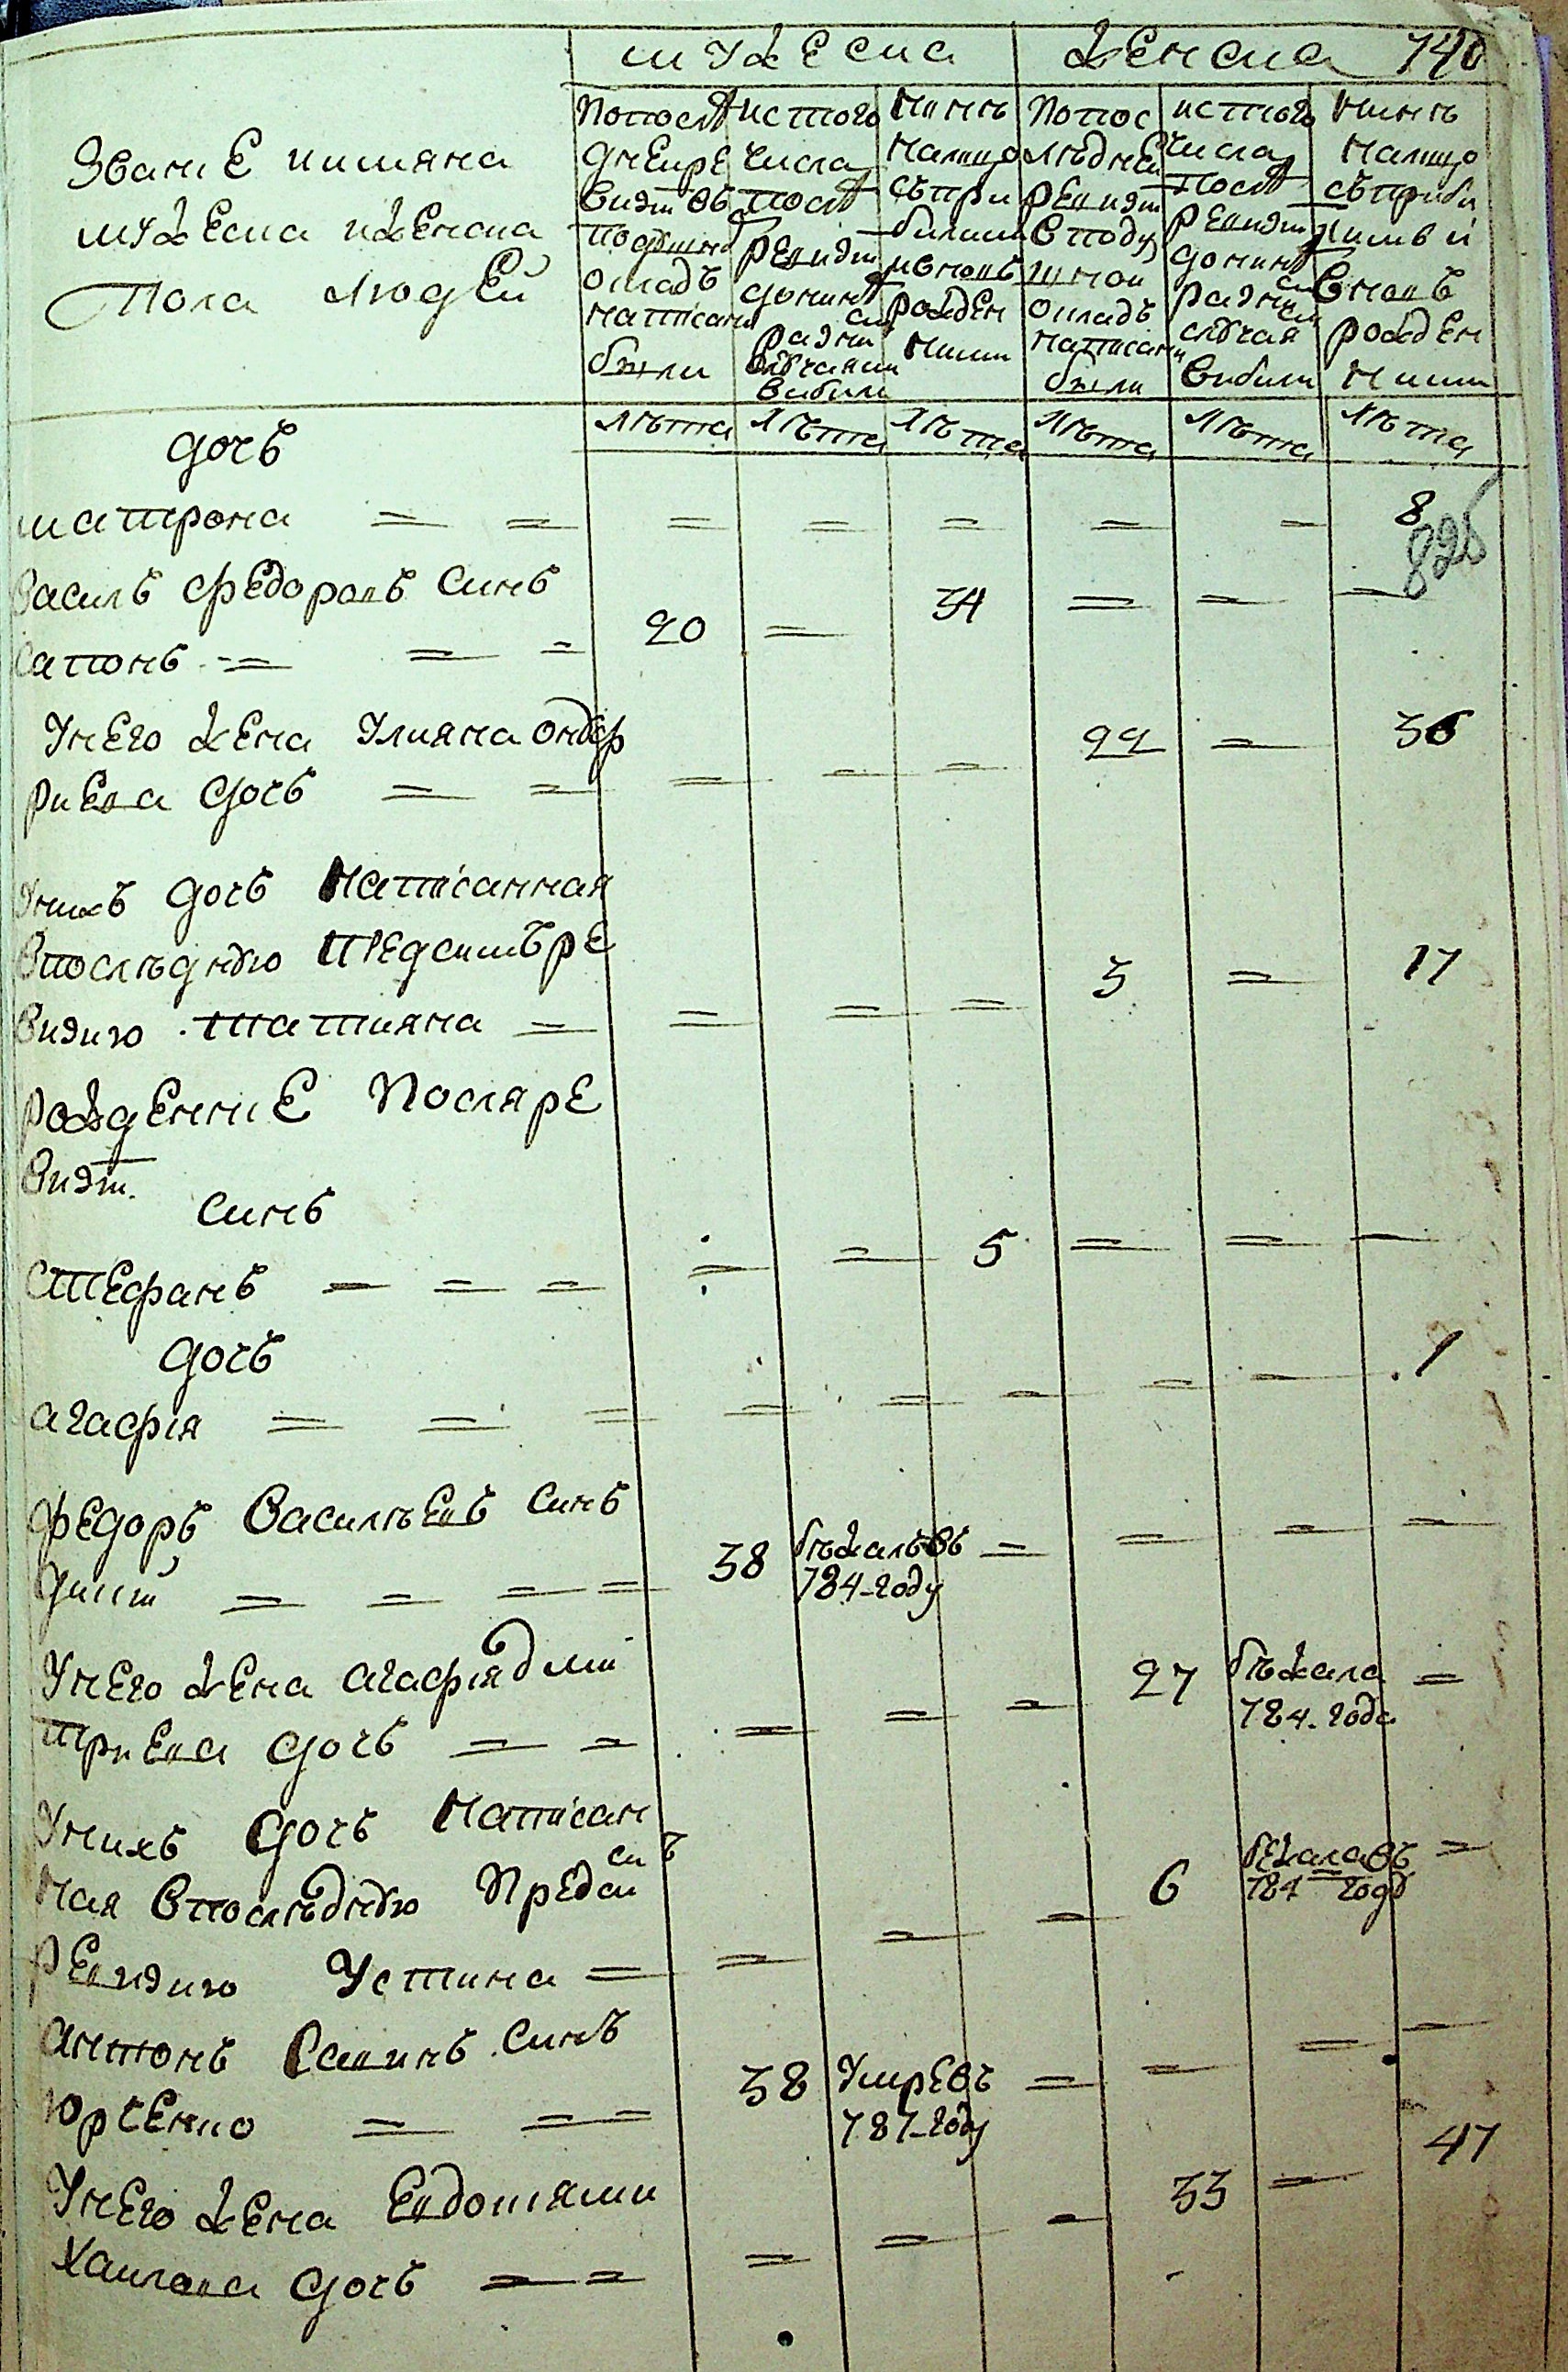 мужеска женска 740
Звание имяна
мужеска иженска
Пола людей
Попосле
дне ире
визи въ
подушно
окладъ
написани
были
истого
числа
после
ревизи
донине
разни
слѣчаями
вибили
Нинѣ
налицо
съпри
билими
ивновъ
рожден
ними
Попос
лѣдней
ревизи
вподу
шной
окладъ
написани
были
истого
числа
После
ревизи
донине
разни
слѣчая
вибили
Нинѣ
налицо
съприби
лими и
вновъ
рожден
ними
лѣта лѣта лѣта лѣта лѣта лѣта
дочъ
матрона = = = = = = = 8
825
Василъ Федоровъ синъ
сапонъ = = = 20 = 34 = = =
Унего жена Улияна онд
риева дочъ = = = = = 22 = 36
Унихъ дочъ Написанная
Впослѣднюю Предсимъ ре
визию Татияна = = = = 3 = 17
рожденние После ре
визи.
синъ
Стефанъ = = = = = 5 = = =
дочъ
агафия = = = = = = = = 1
Федоръ Василъевъ синъ
= = = = 38 бѣжалъ въ 784-году = = = =
Унего жена агафия дми
триева дочъ = = = = = 27 бѣжала 784. года =
Унихъ дочъ Написан
ная Впослѣднюю Предси
мъ
ревизию Устина = = = = 6 бежала въ 784 годѣ =
антонъ Савинъ синъ
юрченко = = = 38 Умре въ 787-году = = = =
Унего жена Евдокия ми
хаилова дочъ = = = = = 33 = 47